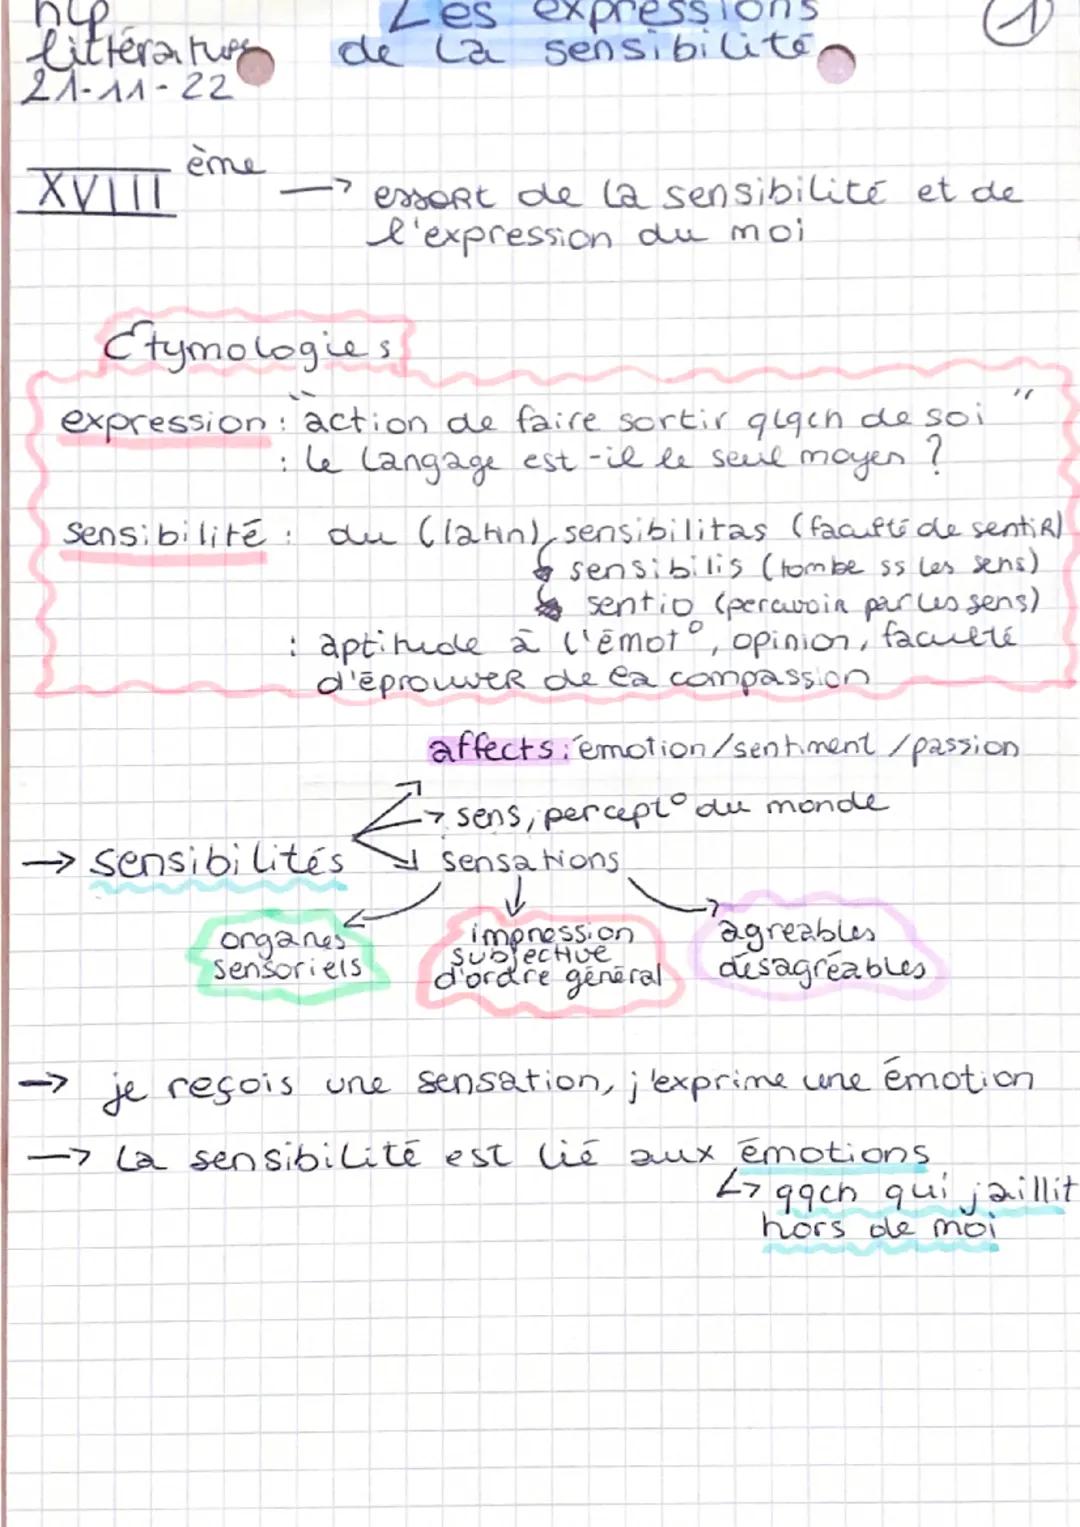 hlp
Les expressions
1
littérature
de la sensibilité
21-11-22
XVIII ème
→ essort de la sensibilité et de
l'expression du moi
Etymologies
expression : "action de faire sortir qlqch de soi"
: le langage est-il le seul moyen ?
sensibilité : du (latin) sensibilitas (faculté de sentir)
↳ sensibilis (tombe ss les sens)
↳ sentio (percevoir par les sens)
: aptitude à l'émot°, opinion, faculté
d'éprouver de la compassion
affects : émotion/sentiment/passion
→ sens, percept° du monde
→ sensibilités
sensations
organes
sensoriels
impression
subjective
d'ordre général
agréables
désagréables
→ je reçois une sensation, j'exprime une émotion
→ la sensibilité est lié aux émotions
↳ qqch qui jaillit
hors de moi